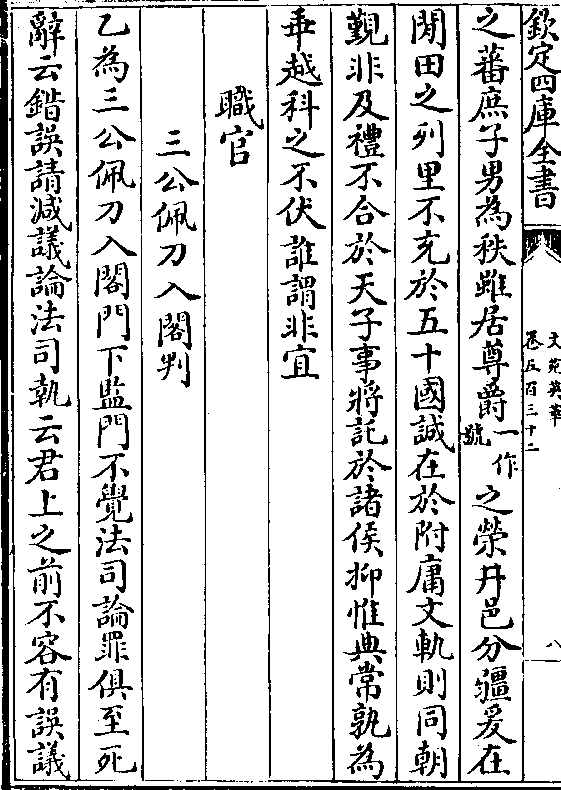 欽定四庫全書
文苑英華
卷五百三十二
八
之蕃庶子男為秩雖居尊爵一作號之榮井邑分疆爰在
閒田之列里不充於五十國誠在於附庸文軌則同朝
覲非及禮不合於天子事將託於諸侯抑惟典常孰為
乖越科之不伏誰謂非宜
職官
三公佩刀入閤判
乙為三公佩刀入閤門下監門不覺法司論罪俱至死
辭云錯誤請減議論法司執云君上之前不容有誤議